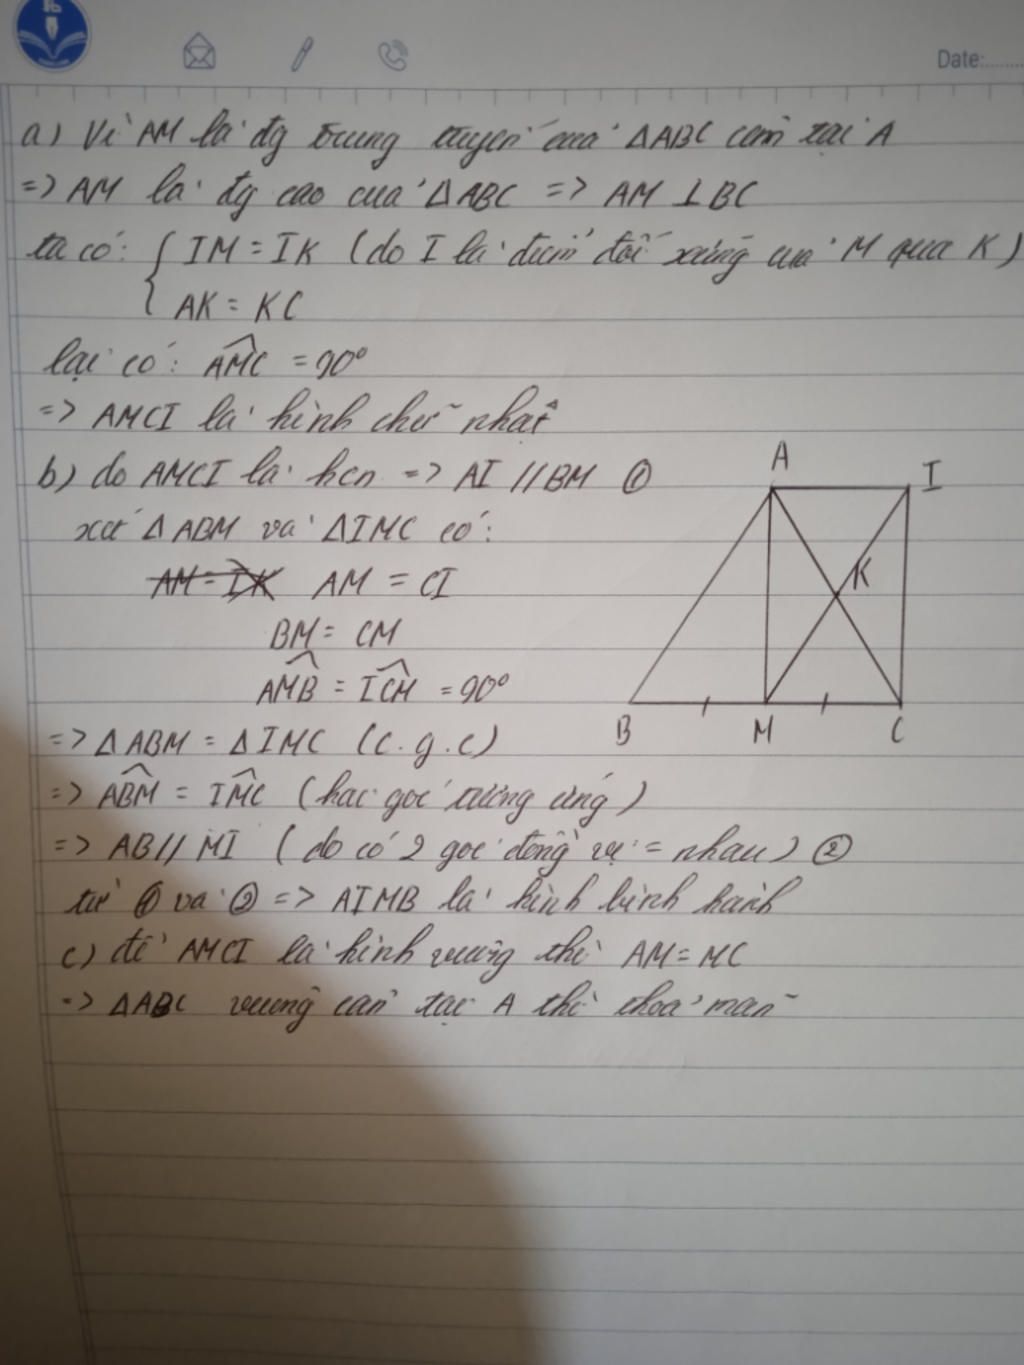 Date:......
a) Vì AM là đg trung tuyến của ΔABC cân tại A
=> AM là đg cao của ΔABC => AM ⊥ BC
ta có: { IM = IK (do I là điểm đối xứng của M qua K)
AK = KC
lại có: AMC = 90°
=> AMCI là hình chữ nhật
b) do AMCI là hcn => AI // BM ①
xét ΔABM và ΔIMC có:
AM = IK AM = CI
BM = CM
AMB = ICM = 90°
=> ΔABM = ΔIMC (c.g.c)
=> ABM = IMC (hai góc tương ứng)
=> AB // MI (do có 2 góc đồng vị = nhau) ②
từ ① và ② => AIMB là hình bình hành
c) để AMCI là hình vuông thì AM = MC
=> ΔABC vuông cân tại A thì thỏa mãn
A
I
K
B
M
C